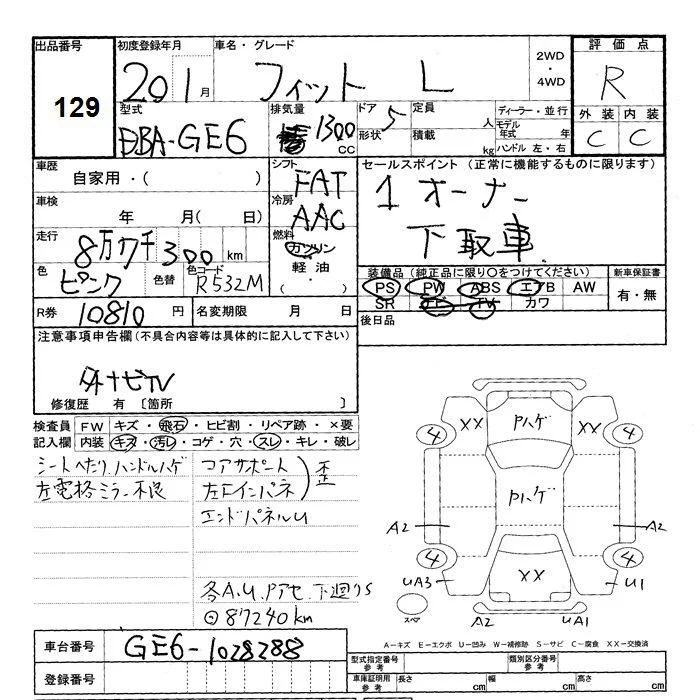 出品番号 初度登録年月 車名・グレード 評価点
129 20 1月 フィット L 2WD・4WD R
型式 排気量 ドア 5 定員 人 ディーラー・並行 外装 内装
DBA-GE6 1300 CC 形状 積載 kg モデル年式 年 ハンドル 左・右 C C
車歴 シフト セールスポイント(正常に機能するものに限ります)
自家用・( ) FAT 1オーナー
車検 冷房
年 月( 日) AAC 下取車
走行 8万7千300km 燃料 ガソリン
色 ピンク 色替 色コード R532M 軽油・( )
装備品(純正品に限り○をつけてください) 新車保証書
PS PW ABS エアB AW 有・無
SR ナビ TV カワ
R券 10810円 名変期限 月 日 後日品
注意事項申告欄(不具合内容等は具体的に記入して下さい)
外ナビTV
修復歴 有〔箇所 〕
検査員 FW キズ・飛石・ヒビ割・リペア跡・×要
記入欄 内装 キズ・汚レ・コゲ・穴・スレ・キレ・破レ
シートヘたり,ハンドルハゲ コアサポート
左電格ミラー不良 左リインパネ 歪
エンドパネルU
各A.U.Pアセ.下廻りS
87240km
XX Pハゲ XX
4 4
Pハゲ
A2 A2
4 4
UA3 XX U1
スペア A2 UA1
車台番号 GE6-1028288
A-キズ E-エクボ U-凹み W-補修跡 S-サビ C-腐食 XX-交換済
登録番号
型式指定番号 参考 類別区分番号 参考
車庫証明用 参考 長さ cm 幅 cm 高さ cm